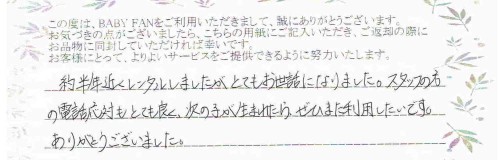 この度は、BABY FANをご利用いただきまして、誠にありがとうございます。
お気づきの点がございましたら、こちらの用紙にご記入いただき、ご返却の際に
お品物に同封していただければ幸いです。
お客様にとって、よりよいサービスをご提供できるように努力いたします。
約半年近くレンタルしましたがとてもお世話になりました。スタッフの方
の電話応対もとても良く、次の子が生まれたら、ぜひまた利用したいです。
ありがとうございました。